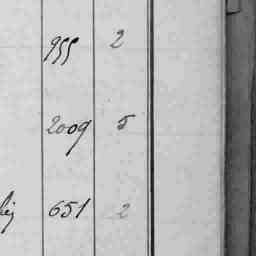 955 2
2009 5
651 2